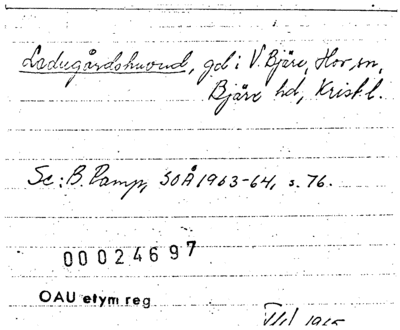 Ladugårdshuvud, gd i V. Bjäre, Hov sn,
Bjäre hd, Krist.l.
Se: B. Pamp, SOÅ 1963-64, s. 76.
00024697
OAU etym reg
1965